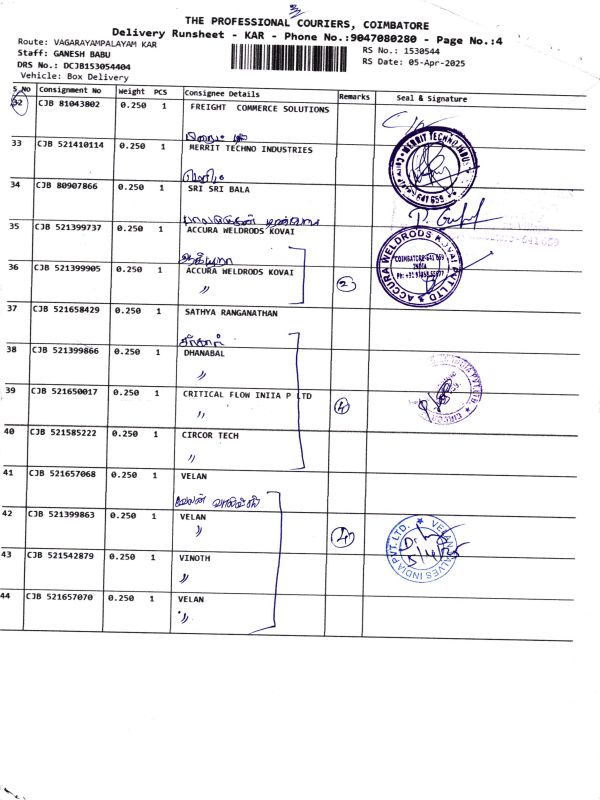 THE PROFESSIONAL COURIERS, COIMBATORE
Delivery Runsheet - KAR - Phone No.:9047080280 - Page No.:4
Route: VAGARAYAMPALAYAM KAR
Staff: GANESH BABU
DRS No.: DCJB153054404
Vehicle: Box Delivery
RS No.: 1530544
RS Date: 05-Apr-2025
S_No Consignment No Weight PCS Consignee Details Remarks Seal & Signature
32 CJB 81043802 0.250 1 FREIGHT COMMERCE SOLUTIONS
33 CJB 521410114 0.250 1 MERRIT TECHNO INDUSTRIES
MERRIT TECHNO INDUST
641 659
34 CJB 80907866 0.250 1 SRI SRI BALA
641 659
35 CJB 521399737 0.250 1 ACCURA WELDRODS KOVAI
36 CJB 521399905 0.250 1 ACCURA WELDRODS KOVAI
〃 2
ACCURA WELDRODS KOVAI PVT LTD
COIMBATORE-641 659
INDIA
37 CJB 521658429 0.250 1 SATHYA RANGANATHAN
38 CJB 521399866 0.250 1 DHANABAL
〃
39 CJB 521650017 0.250 1 CRITICAL FLOW INIIA P LTD
〃 4
40 CJB 521585222 0.250 1 CIRCOR TECH
〃
41 CJB 521657068 0.250 1 VELAN
வேலன் வால்வ்ஸ்
42 CJB 521399863 0.250 1 VELAN
〃 4
VELAN VALVES INDIA PVT. LTD.
43 CJB 521542879 0.250 1 VINOTH
〃
44 CJB 521657070 0.250 1 VELAN
〃